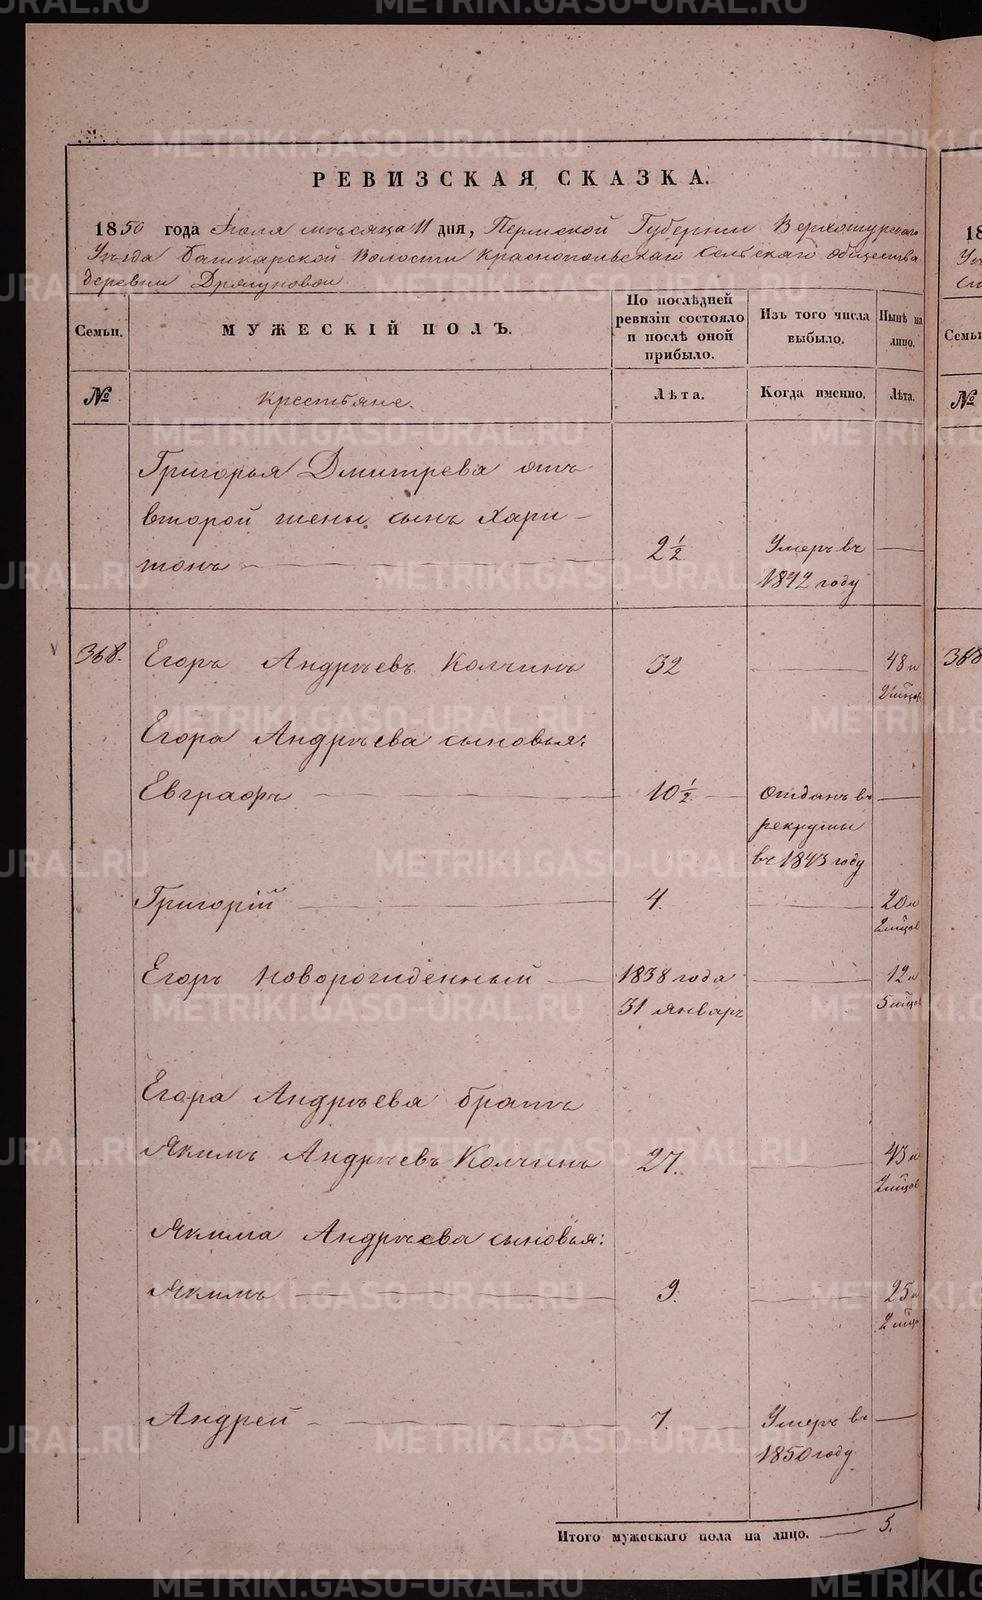 РЕВИЗСКАЯ СКАЗКА.
1850 года Іюля мѣсяца 11 дня, Пермской Губерніи Верхотурскаго
Уѣзда Башкарской Волости Краснопольскаго Сельскаго общества
деревни Дрягуновой
Семьи.
МУЖЕСКІЙ ПОЛЪ.
По послѣдней
ревизіи состояло
и послѣ оной
прибыло.
Изъ того числа
выбыло.
Нынѣ на
лицо.
№
Крестьяне.
Лѣта.
Когда именно.
Лѣта.
Григорья Дмитрева отъ
второй жены сынъ Хари-
тонъ 2½ Умеръ въ
1842 году
368. Егоръ Андрѣевъ Колчинъ 32 48 и
2 мѣсцов
Егора Андрѣева сыновья:
Евграфъ 10½ Отданъ въ
рекруты
въ 1843 году
Григорій 4. 20 и
2 мѣсцов
Егоръ новорожденный 1838 года 12 и
31 январъ 5 мѣсцов
Егора Андрѣева братъ
Якимъ Андрѣевъ Колчинъ 27. 43 и
2 мѣсцов
Якима Андрѣева сыновья:
Якимъ 9. 25 и
2 мѣсц
Андрей 7. Умеръ въ
1850 году
Итого мужескаго пола на лицо. 5.
METRIKI.GASO-URAL.RU